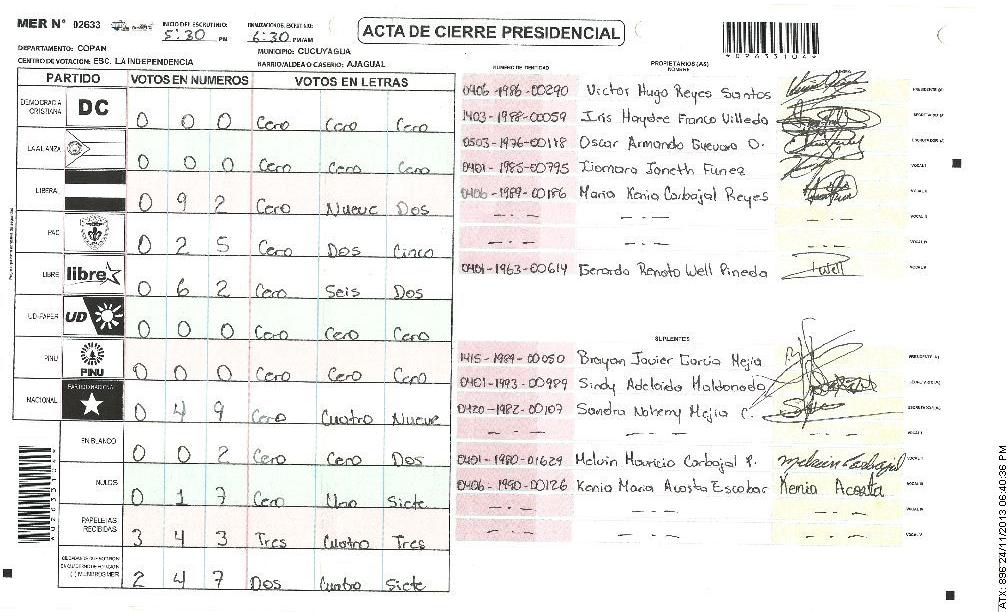 MER N° 02633 INICIO DEL ESCRUTINIO: 5:30 PM FINALIZACION DEL ESCRUTINIO: 6:30 PM/AM
ACTA DE CIERRE PRESIDENCIAL
*02633104*
DEPARTAMENTO: COPAN MUNICIPIO: CUCUYAGUA
CENTRO DE VOTACION: ESC. LA INDEPENDENCIA BARRIO/ALDEA O CASERIO: AJAGUAL
PARTIDO VOTOS EN NUMEROS VOTOS EN LETRAS
DEMOCRACIA CRISTIANA DC 0 0 0 Cero Cero Cero
LA ALIANZA 0 0 0 Cero Cero Cero
LIBERAL 0 9 2 Cero Nueve Dos
PAC 0 2 5 Cero Dos Cinco
LIBRE libre 0 6 2 Cero Seis Dos
UD-FAPER UD 0 0 0 Cero Cero Cero
PINU PINU 0 0 0 Cero Cero Cero
NACIONAL PARTIDO NACIONAL 0 4 9 Cero Cuatro Nueve
EN BLANCO 0 0 2 Cero Cero Dos
NULOS 0 1 7 Cero Uno Siete
PAPELETAS RECIBIDAS 3 4 3 Tres Cuatro Tres
2 4 7 Dos Cuatro Siete
NUMERO DE IDENTIDAD PROPIETARIOS (AS) NOMBRE FIRMA
0406-1986-00290 Victor Hugo Reyes Santos PRESIDENTE (A)
1403-1988-00059 Iris Haydee Franco Villeda SECRETARIO (A)
0503-1976-00118 Oscar Armando Guevara O. ESCRUTADOR (A)
0401-1985-00795 Xiomara Janeth Funez VOCAL I
0406-1989-00186 Maria Kenia Carbajal Reyes VOCAL II
- . - - . - - . -
- . - - . - - . - VOCAL IV
0401-1963-00614 Gerardo Renato Well Pineda Well
SUPLENTES
1415-1989-00050 Brayan Javier Garcia Mejia PRESIDENTE (A)
0401-1993-00989 Sindy Adelaida Maldonado
0420-1982-00107 Sandra Nohemy Mejia C.
- . - - . - - . - VOCAL I
0401-1980-01629 Melvin Mauricio Carbajal P. Melvin Carbajal
0406-1950-00126 Kenia Maria Acosta Escobar Kenia Acosta VOCAL III
- . - - . - - . - VOCAL IV
- . - - . - - . - VOCAL V
ATX: 896:24/11/2013 06:40:36 PM